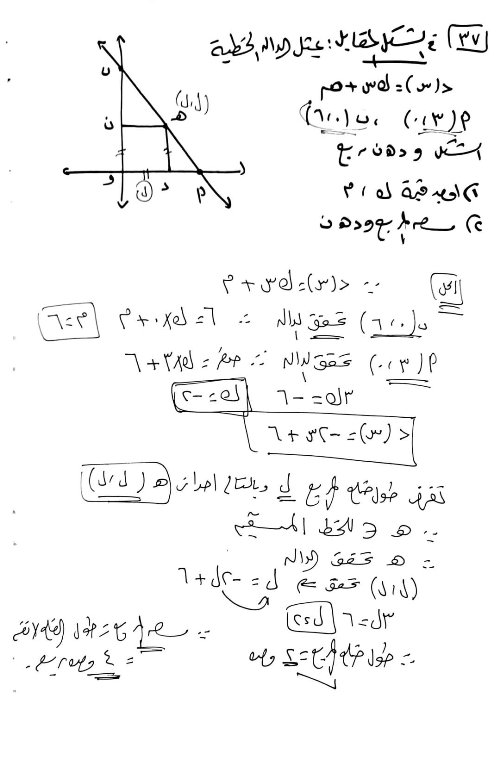 ٣٧ في الشكل المقابل: يمثل الدالة الخطية
د(س) = ك س + م
م (٣،٠) ، ب (٠،٦)
الشكل و د هـ ن مربع
١) اوجد قيمة ك ، م
٢) مساحة المربع و د هـ ن
ب
ن
هـ
(ل،ل)
و
ل
د
م
الحل
∵ د(س) = ك س + م
ب (٠،٦) تحقق الدالة ∴ ٦ = ك×٠ + م
م = ٦
م (٣،٠) تحقق الدالة ∴ صفر = ك×٣ + ٦
٣ك = -٦
ك = -٢
د (س) = -٢س + ٦
نفرض طول ضلع المربع ل وبالتالي احداثى هـ (ل،ل)
∵ هـ ∈ للخط المستقيم
∴ هـ تحقق الدالة
(ل،ل) تحقق ⇐ ل = -٢ل + ٦
٣ل = ٦
ل = ٢
∴ طول ضلع المربع = ٢ وحدة
∴ مساحة المربع = طول الضلع × نفسه
= ٤ وحدة مربعة.